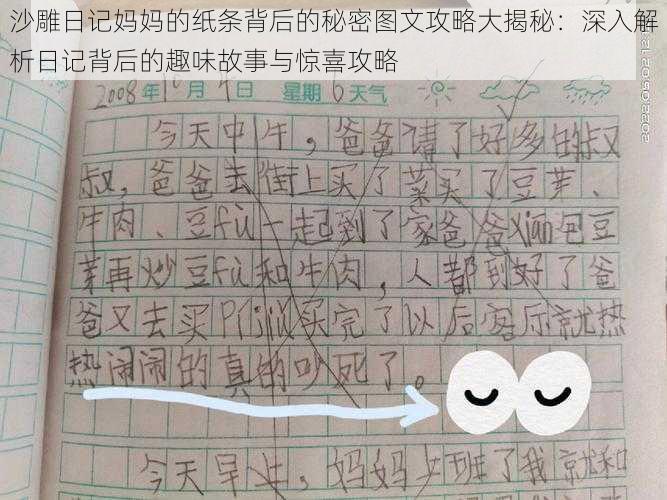 沙雕日记妈妈的纸条背后的秘密图文攻略大揭秘：深入解
析日记背后的趣味故事与惊喜攻略
2008年10月4日 星期6天气
今天中午，爸爸请了好多的叔
叔，爸爸去街上买了菜买了豆芽、
牛肉、豆fu一起到了家爸爸xian包豆
芽再炒豆fu和牛肉，人都到好了爸
爸又去买Pijiu买完了以后客厅就热
热闹闹的真的吵死了。
今天早上，妈妈上班了我就和